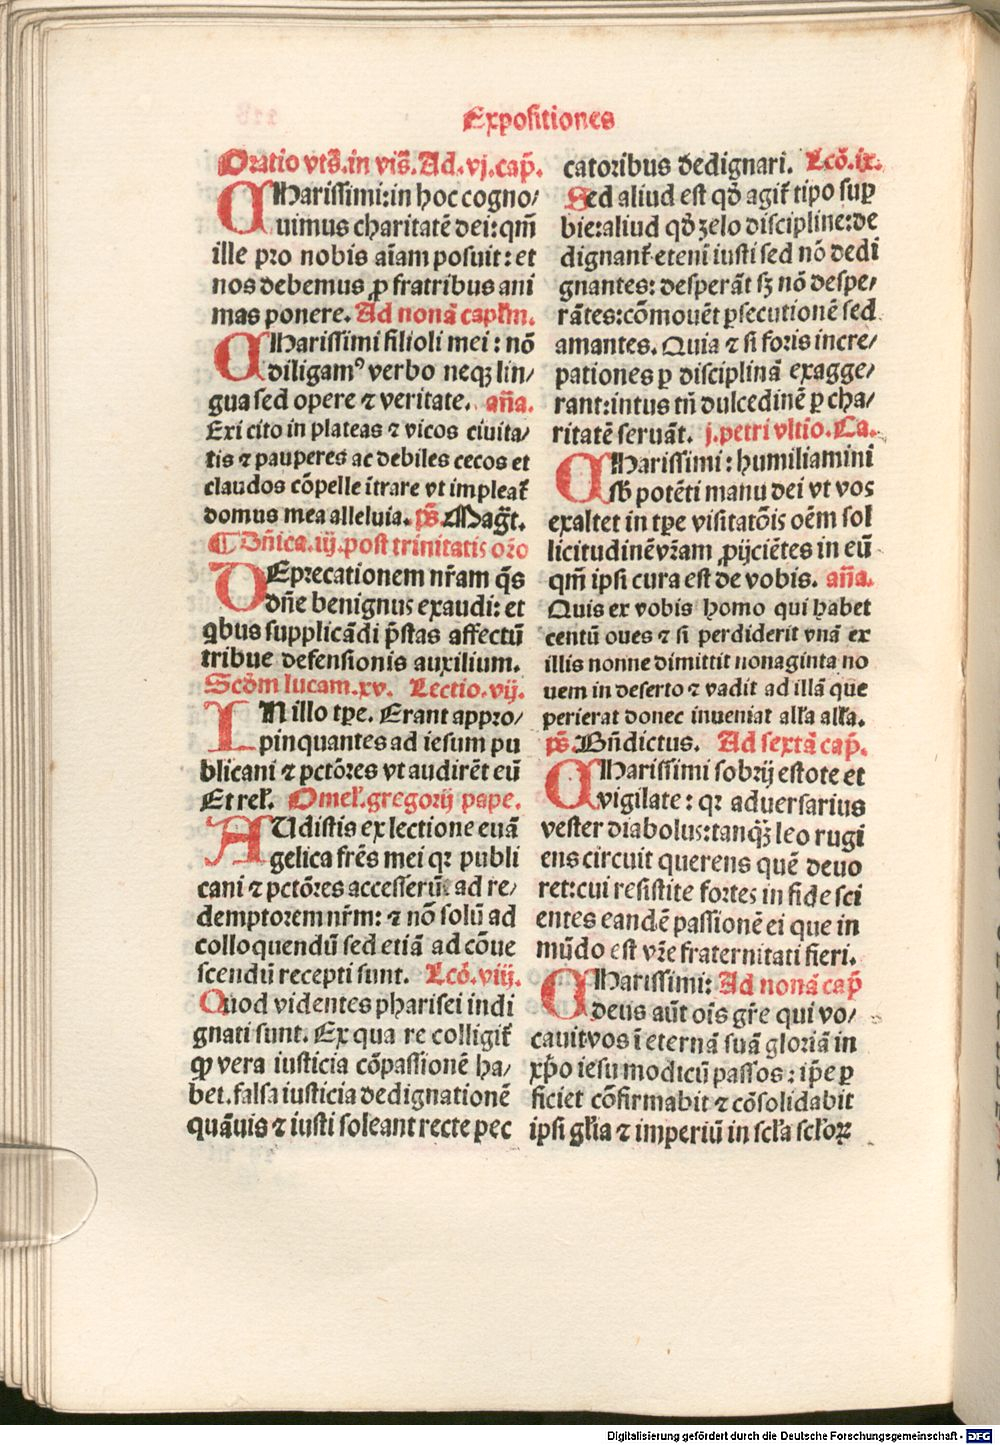 Expositiones
Oratio vtẜ. in visẜ. Ad. vj. cap̄.
CHarissimi: in hoc cogno/
uimus charitatē dei: qm̄
ille pro nobis aīam posuit: et
nos debemus ꝓ fratribus ani
mas ponere. Ad nonā caplm̄.
CHarissimi filioli mei: nō
diligamꝰ verbo neqꝫ lin/
gua sed opere ⁊ veritate. aña.
Exi cito in plateas ⁊ vicos ciuita/
tis ⁊ pauperes ac debiles cecos et
claudos cōpelle ītrare vt impleat̄
domus mea alleluia. ps̄. Mag̃t.
¶ Dñica. iij. post trinitatis or̃o
DEprecationem nr̄am q̄s
dñe benignus exaudi: et
qͥbus supplicādi p̄stas affectū
tribue defensionis auxilium.
Scd̄m lucam. xv. Lectio. vij.
IN illo tp̄e. Erant appro/
pinquantes ad iesum pu
blicani ⁊ pctōres vt audirēt eū
Et rel̄. Omel̄. gregorij pape.
AUdistis ex lectione euā
gelica frēs mei qꝛ publi
cani ⁊ pctōres accesserūt ad re/
demptorem nr̄m: ⁊ nō solū ad
colloquendū sed etiā ad cōue
scendū recepti sunt. Lcō. viij.
Quod videntes pharisei indi
gnati sunt. Ex qua re colligit̄
ꝙ vera iusticia cōpassionē ha/
bet. falsa iusticia dedignationē
quāuis ⁊ iusti soleant recte pec
catoribus dedignari. Lcō. ix.
Sed aliud est qd̄ agit̄ tipo suꝑ
bie: aliud qd̄ zelo discipline: de
dignant̄ etenī iusti sed nō dedi
gnantes: desperāt sꝫ nō despe/
rātes: cōmouēt ꝑsecutionē sed
amantes. Quia ⁊ si foris incre/
pationes ꝑ disciplinā exagge/
rant: intus tn̄ dulcedinē ꝑ cha/
ritatē seruāt. j. petri vltio. Ca.
CHarissimi: humiliamini
sb̄ potēti manu dei vt vos
exaltet in tp̄e visitatōis oēm sol
licitudinē vr̄am ꝓijciētes in eū
qm̄ ipsi cura est de vobis. aña.
Quis ex vobis homo qui habet
centū oues ⁊ si perdiderit vnā ex
illis nonne dimittit nonaginta no
uem in deserto ⁊ vadit ad illā que
perierat donec inueniat all̄a all̄a.
ps̄. Bn̄dictus. Ad sextā cap̄.
CHarissimi sobrij estote et
vigilate: qꝛ aduersarius
vester diabolus: tanqꝫ̄ leo rugi
ens circuit querens quē deuo
ret: cui resistite fortes in fide sci
entes eandē passionē ei que in
mūdo est vr̄e fraternitati fieri.
CHarissimi: Ad nonā cap̄
deus aūt oīs gr̄e qui vo/
cauit vos ī eternā suā gloriā in
xp̄o iesu modicū passos: ip̄e ꝑ
ficiet cōfirmabit ⁊ cōsolidabit
ipsi gl̄ia ⁊ imperiū in scl̄a scl̄oꝝ
Digitalisierung gefördert durch die Deutsche Forschungsgemeinschaft - DFG